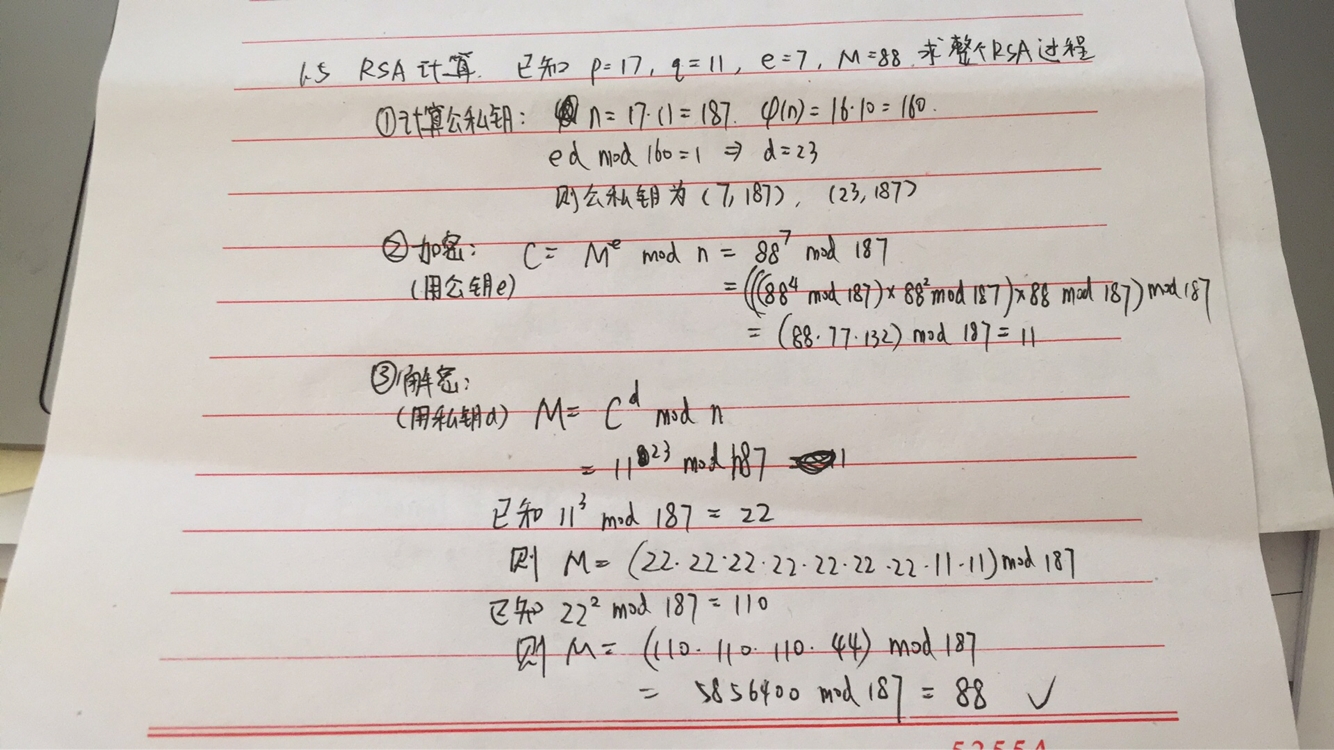 1.5 RSA 计算. 已知 p=17, q=11, e=7, M=88, 求整个RSA过程
①计算公私钥: n=17·11=187. φ(n)=16·10=160.
ed mod 160=1 ⇒ d=23
则公私钥为 (7,187), (23,187)
②加密: C= M^e mod n = 88^7 mod 187
(用公钥e) = (((88^4 mod 187)×88^2 mod 187)×88 mod 187) mod 187
= (88·77·132) mod 187 = 11
③解密:
(用私钥d) M= C^d mod n
= 11^23 mod 187
已知 11^3 mod 187 = 22
则 M= (22·22·22·22·22·22·22·11·11) mod 187
已知 22^2 mod 187 = 110
则 M= (110·110·110·44) mod 187
= 5856400 mod 187 = 88 ✓